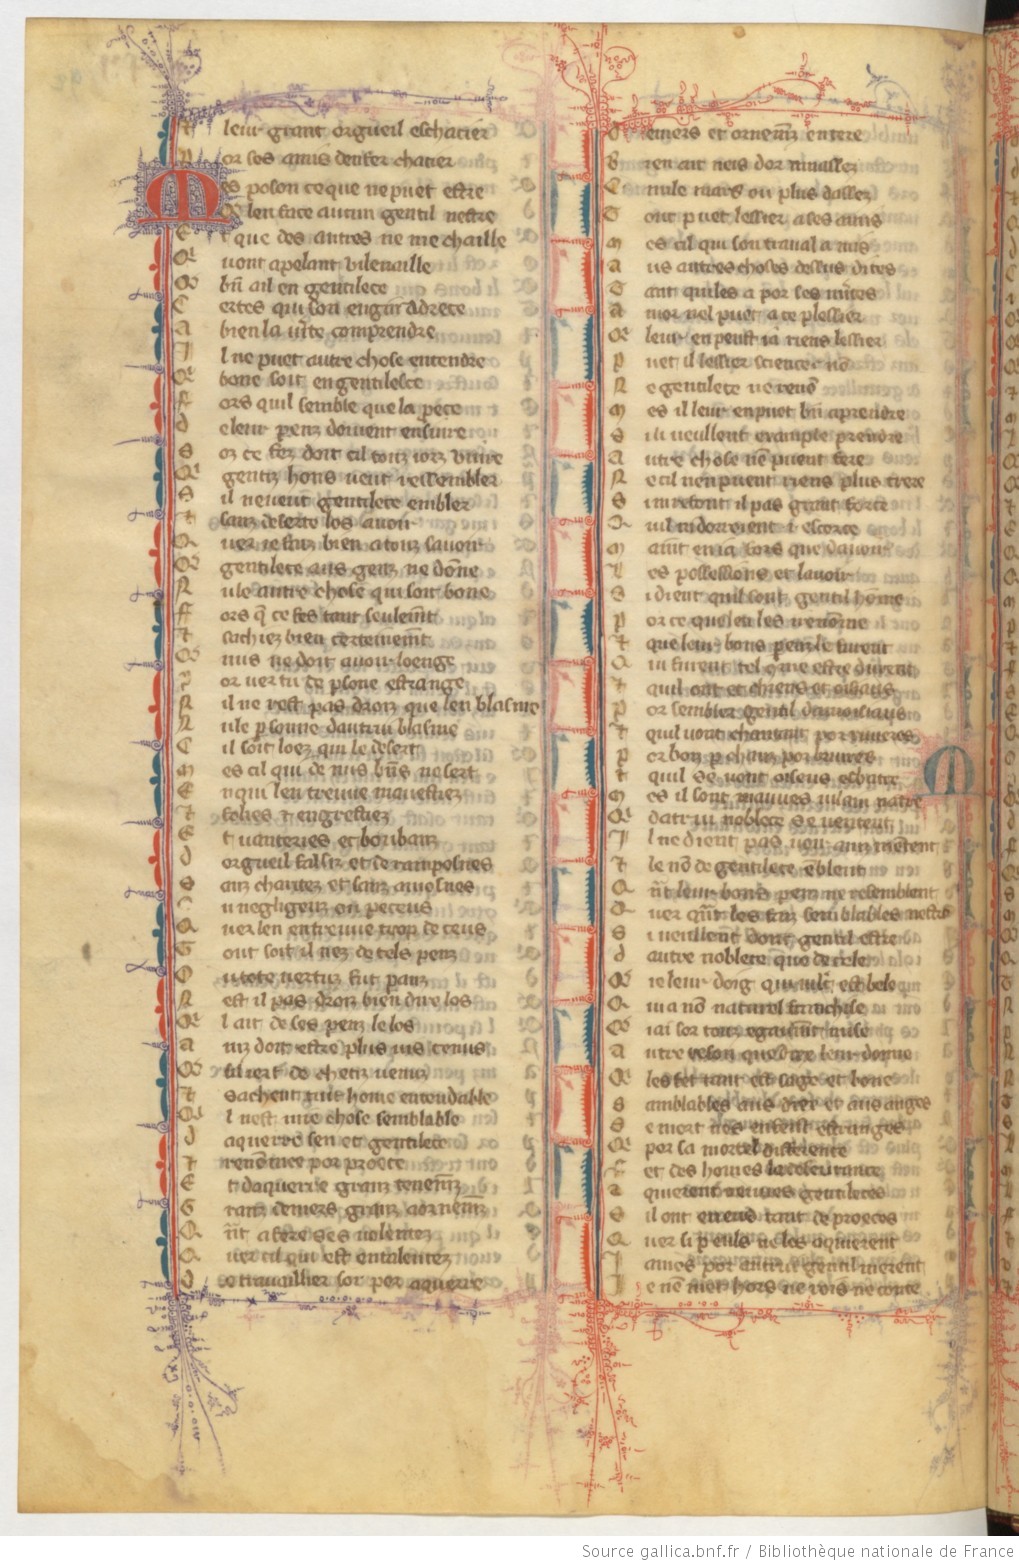 leur grant orgueil eschacier
or ses amis deuser chacier
Mes poson ce que ne puet estre
Q len face aucun gentil nestre
E t que des autres ne me chaille
Q uont apelant vilenaille
Q bn̄ a il en gentilece
C ertes qui son engin adrece
A bien la ūite comprendre
I l ne puet autre chose entendre
Q bone soit en gentilesce
F ors quil semble que la pece
D e leur penz doiuent ensuire
S oz ce fez doit cil touz iorz viure
Q gentiz homs ueut ressembler
S il ne ueut gentilece embler
sanz deserte los auoir
Q uer ie faz bien a touz sauoir
Q gentilece aus genz ne dōne
N ule autre chose qui soit bone
F ors q̄ ce fes tant seulem̄t
T sachiez bien certeinem̄t
Q nus ne doit auoir loenge
P or uertu de psone estrange
R il ne rest pas droiz que len blasme
N ule psonne dautrui blasme
C il soit loez qui le desert
M es cil qui de nus bn̄s ne sert
E n qui len treuue mauestiez
folies ⁊ engrestiez
E t uanteries et bonbanz
orgueil falsiz et se ramposnes
S anz chartez et sanz aumosnes
u negligenz ou peceus
Q uer len en treuue trop de ceus
T out soit il nez de tels penz
O u tote uertuz fut panz
N est il pas droiz bien dire los
Q l ait de ses penz le los
A inz doit estre plus uis tenus
Q sil iert de chetiz uenuz
T sachent tuit home entendable
Q l nest mie chose semblable
D aquerre sen et gentilece
T renōmee por proece
E t daquerre granz tenem̄z
G ranz deniers granz aornem̄z
Q n̄t a fere ses uolentez
Q uer cil qui est entalentez
D e trauaillier sor per aquerre
D eniers et ornem̄z en terre
B ien ait neis dor amassez
C mile mars ou plus dassez
T out puet lessier a ses amis
M es cil qui son trauail a mis
A us autres choses desus dites
T ant quiles a por ses m̄ites
A mor nel puet a ce plessier
Q leur en peust ia riens lessier
P uet il lessier science nō
N e gentilece ne renō
M es il leur en puet bn̄ aprendre
S il ueullent example prendre
A utre chose nē puent fere
N e cil nen puent riens plus trere
S i ni refont il pas grant force
Q uil ni donroient .i. escorce
M aīt en ia fors que dauoir
L es possessions et lauoir
S i dient quil sont gentil home
P or ce que len les i renōme
T que leur bons penz le furent
Q ui furent tel q̄me estre durent
T quil ont et chiens et oisiaus
P or sembler gentil damoisiaus
T quil uont chantant por riuieres
P or bois p chanz por bruieres
T quil se uont oiseus esbatre
M es il sont mauues uilain natre
Q dautrui noblece se uentent
I l ne dient pas uoir ainz mētent
T le nō de gentilece ēblent
Q n̄t leur bons penz ne resemblent
Q uer q̄nt les faz semblables nestre
S i ueullent donc gentil estre
D autre noblece que de cele
Q ie leur doig qui m̄lt est bele
Q ui a nō naturel franchise
Q iai sor touz egaum̄t mise
A uec reson que dex leur done
Q les fet tant est sage et bone
S amblables aus dex et aus anges
S e mort nes en feist estranges
Q por sa mortel difference
F et des homes la desseurance
A quierent neuues gentileces
S il ont en eus tant de proeces
Q uer si p euls ne les aquierent
I ames por autrui gentil nierent
I e nē met hors ne rois ne conte